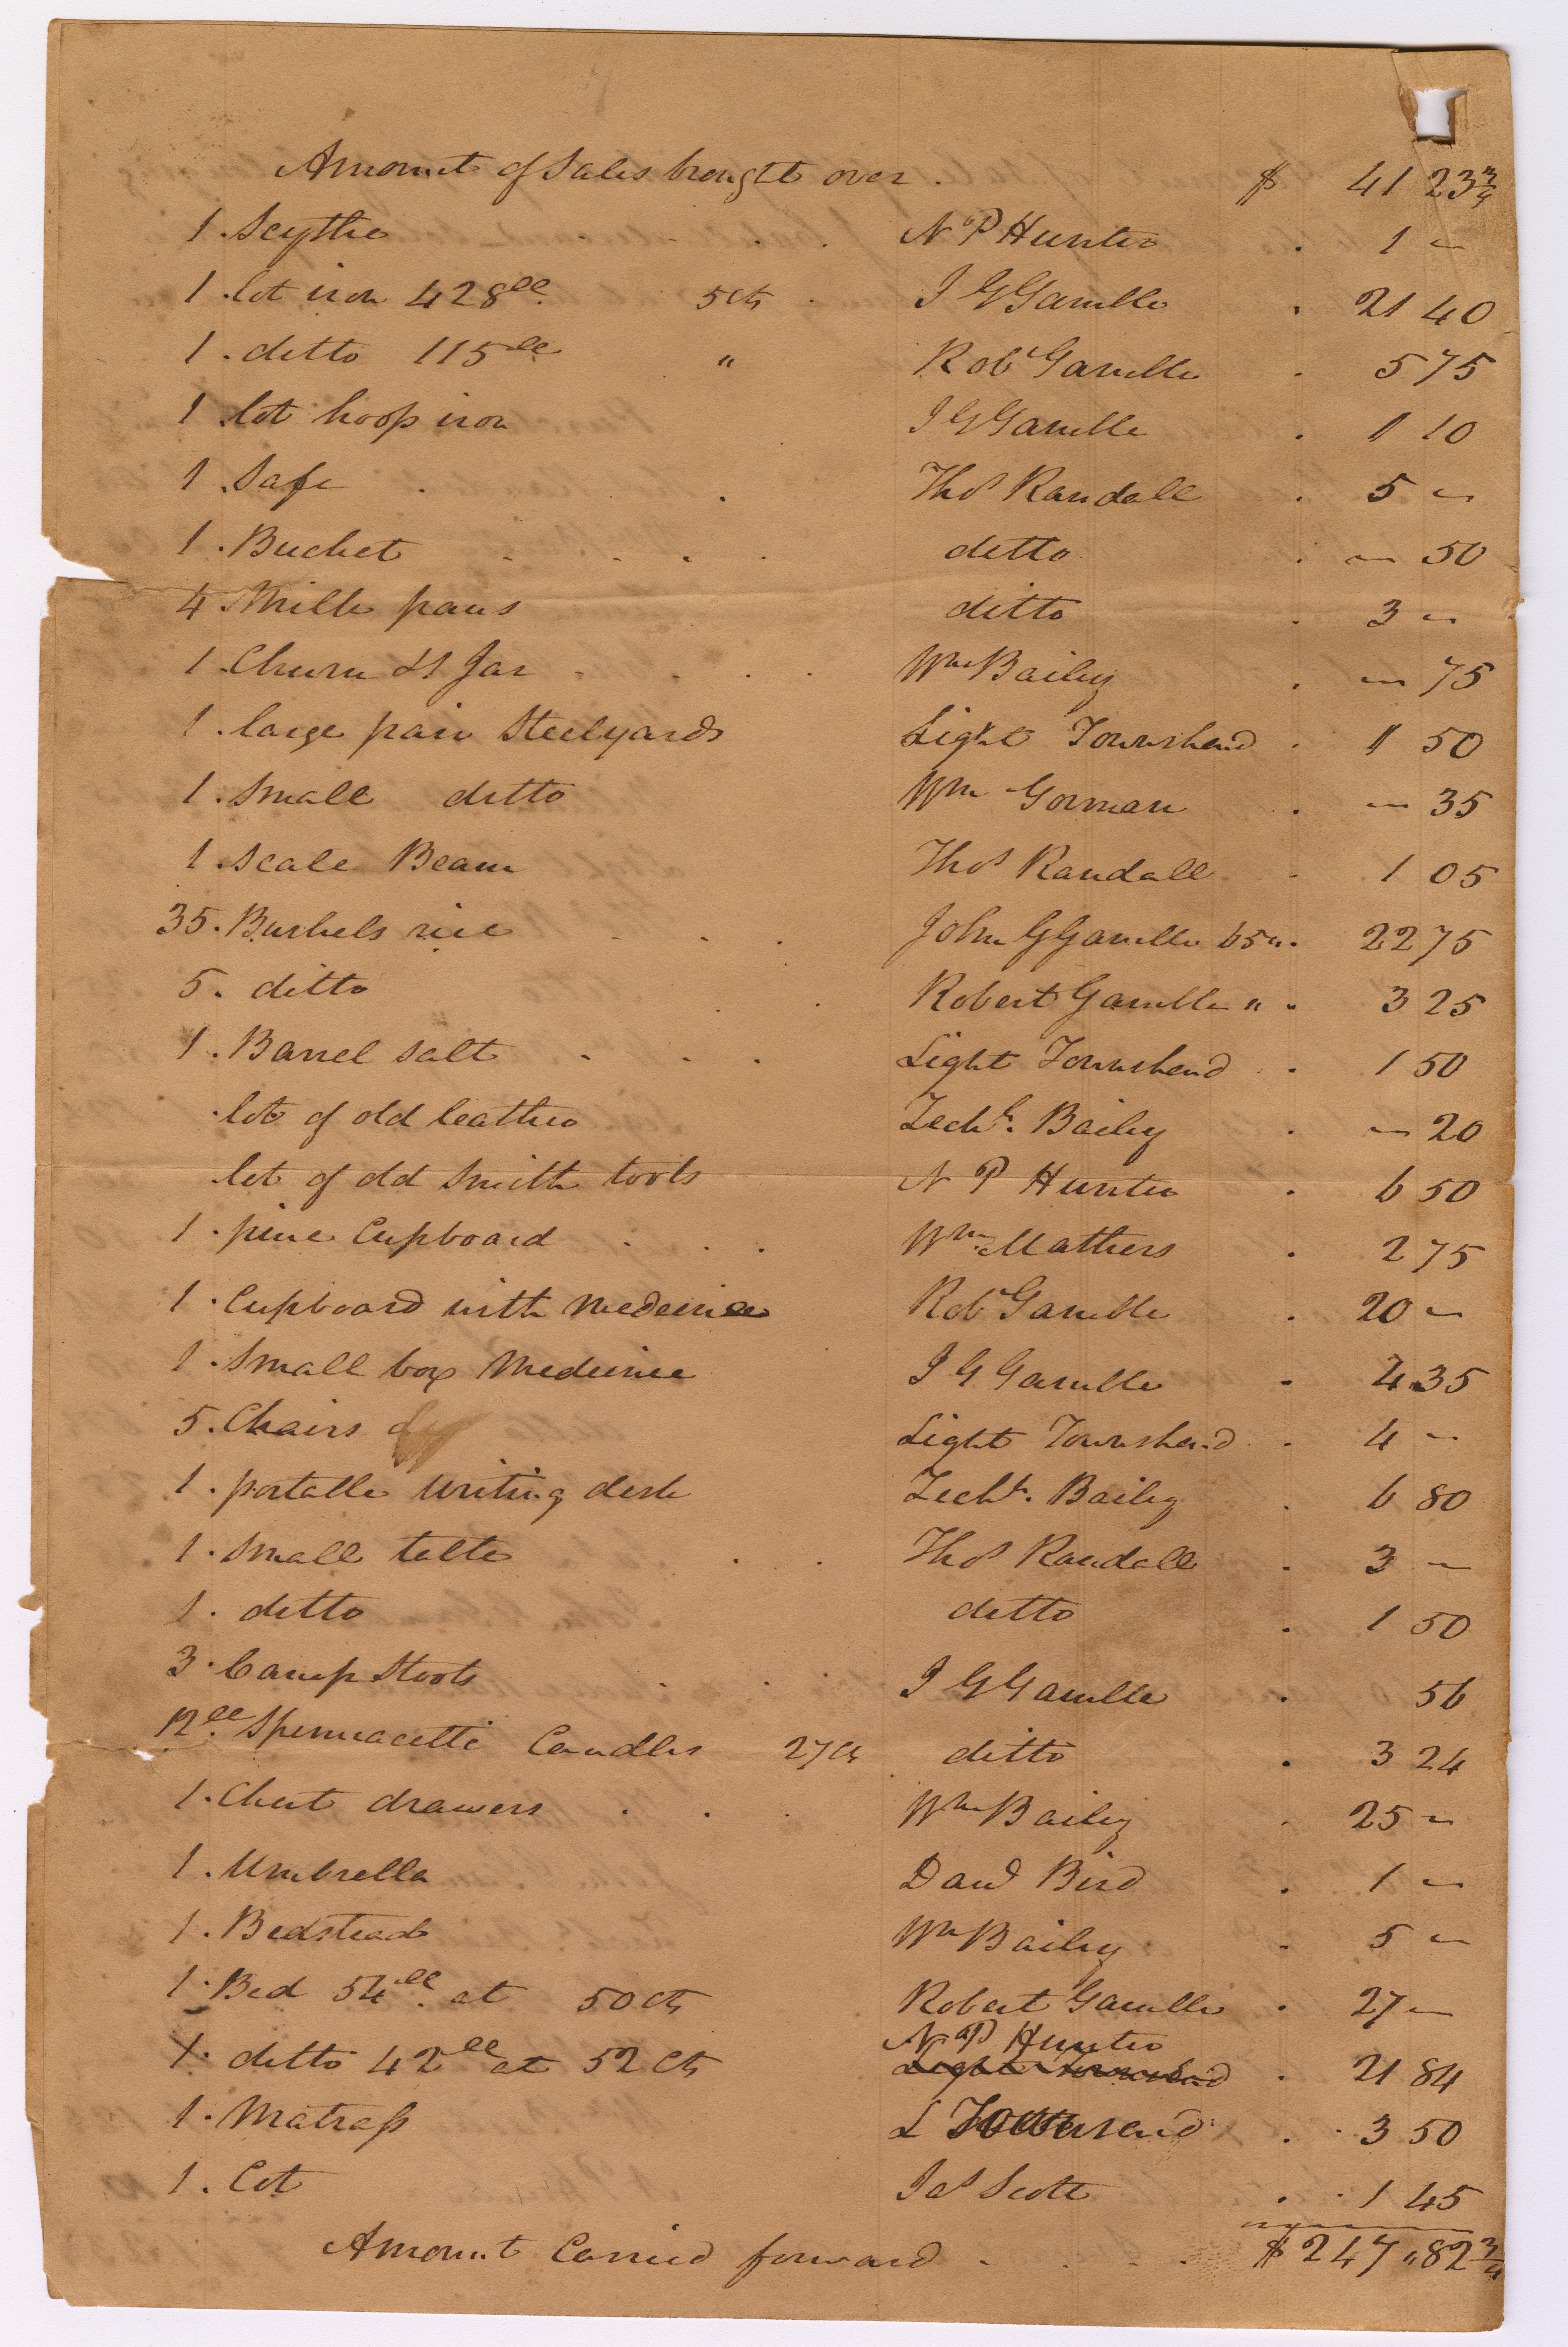 Amount of Sales brought over . $ 41 23 3/4
1 . Scythe . . . . N. P Hunter . 1 ~
1 . lot iron 428 ll. 5 Cts . J G Gamble . 21 40
1 . ditto 115 ll " Robt Gamble . 5 75
1 lot hoop iron J G Gamble . 1 10
1 . Safe . . Thos Randall . 5 ~
1 . Bucket . . . . ditto . ~ 50
4 . Milk pans ditto . 3 ~
1 . Churn & 1 Jar . . . . Wm Bailey . ~ 75
1 . large pair Steelyards Light Townshend . 1 50
1 . Small ditto Wm Gorman . ~ 35
1 . Scale Beam Thos Randall . 1 05
35 . Bushels rice . . . John G Gamble 65 " . 22 75
5 . ditto . . Robert Gamble " . 3 25
1 . Barrel salt . . . Light Townshend . 1 50
. lot of old leather Zechh. Bailey . ~ 20
. lot of old Smith tools N P Hunter . 6 50
1 . pine Cupboard . . . Wm Mathers . 2 75
1 . Cupboard with Medecine Robt Gamble . 20 ~
1 . Small box Medecine J G Gamble . 4 35
5 . Chairs Light Townshend . 4 ~
1 . portable writing desk Zechh. Bailey . 6 80
1 . Small table . . Thos Randall . 3 ~
1 . ditto ditto . 1 50
3 . Camp Stools . . . J G Gamble . 56
12 ll. Spermacetti Candles 27 Cts . ditto . 3 24
1 . Chest drawers . . . Wm Bailey . 25 ~
1 . Umbrella Davd Bird . 1 ~
1 . Bedstead Wm Bailey . 5 ~
1 . Bed 54 ll. at 50 Cts Robert Gamble . 27 ~
N. P Hunter
1 . ditto 42 ll at 52 Cts Light Townshend . 21 84
1 . Matrass L Townsend . . 3 50
1 . Cot Jas Scott . . 1 45
Amount Carried forward . . . . $ 247 " 82 3/4